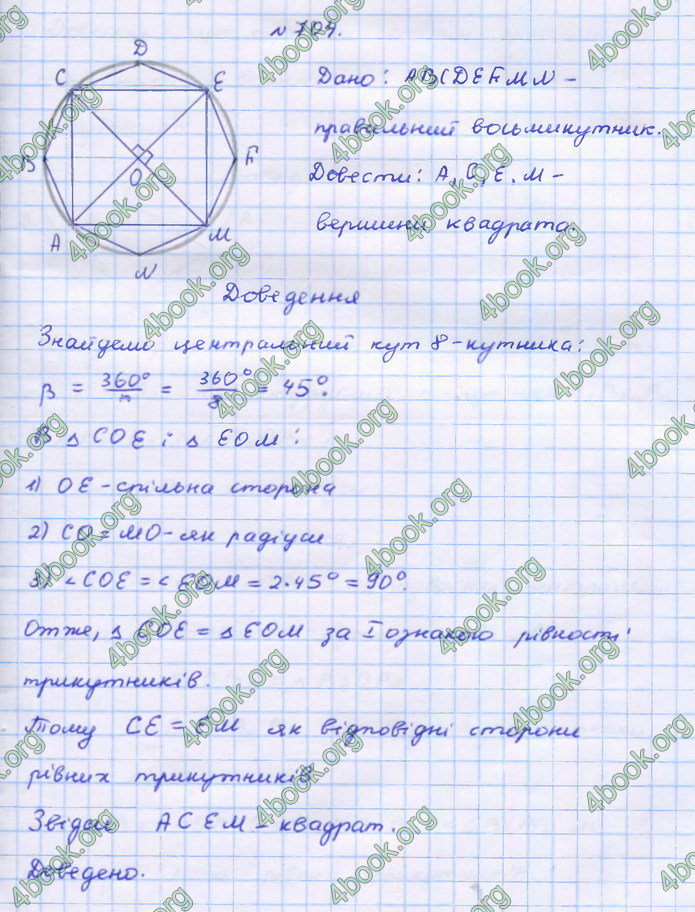 № 704.
D
C
E
Дано: ABCDEFMN –
правильний восьмикутник.
B
O
F
Довести: A, C, E, M –
A
M
вершини квадрата.
N
Доведення
Знайдемо центральний кут 8-кутника:
β = 360°/n = 360°/8 = 45°.
В △ COE і △ EOM:
1) OE – спільна сторона
2) CO = MO – як радіуси
3) ∠COE = ∠EOM = 2·45° = 90°.
Отже, △ COE = △ EOM за I ознакою рівності
трикутників.
Тому CE = EM як відповідні сторони
рівних трикутників.
Звідси ACEM – квадрат.
Доведено.
4book.org